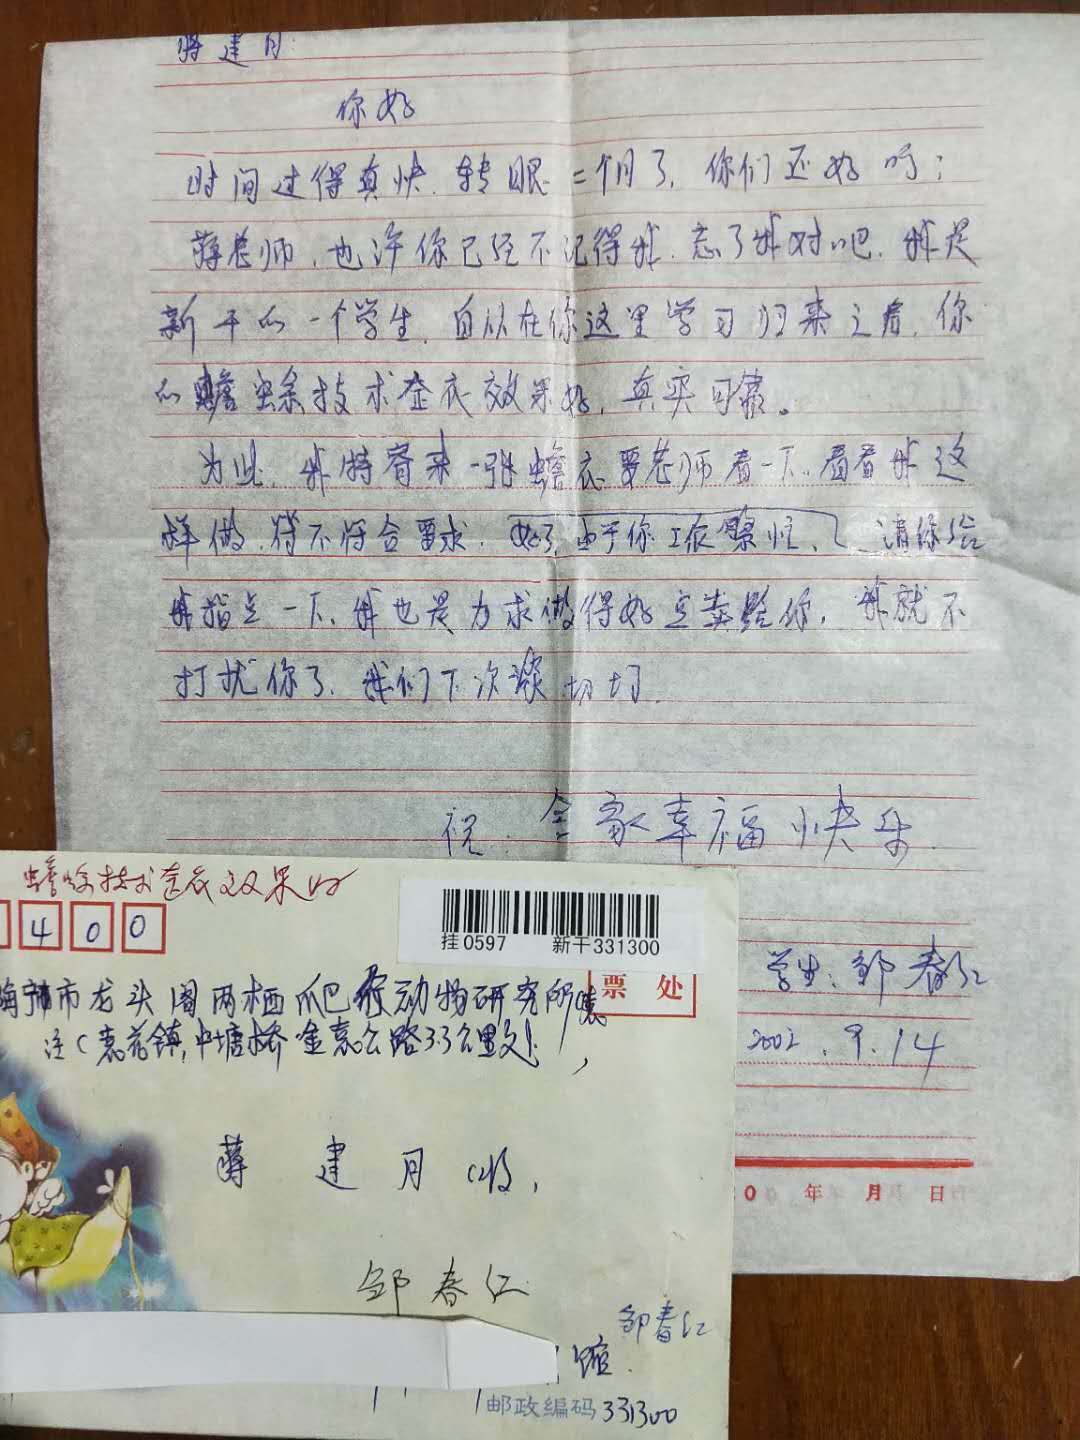 蒋建月:
你好
时间过得真快.转眼二个月了,你们还好吗;
蒋老师.也许你已经不记得我.忘了我对吧.我是
新干的一个学生.自从在你这里学习归来之后,你
的蟾蜍技术蜕衣效果好,真实可靠。
为此.我特寄来一张蟾衣要老师看一下.看看我这
样做.符不符合要求.好了,由于你工作繁忙、请你给
我指点一下.我也是力求做得好点卖给你,我就不
打扰你了.我们下次
祝.全家幸福快乐
学生:邹春江
2002.9.14
00 年 月 日
蟾蜍技术蜕衣效果好
400
挂0597 新干331300
票处
海宁市龙头阁两栖爬行动物研究所
注(袁花镇,中塘桥金袁公路33公里处)
蒋建月 (收)
邹春江
邹春江
馆.
邮政编码331300